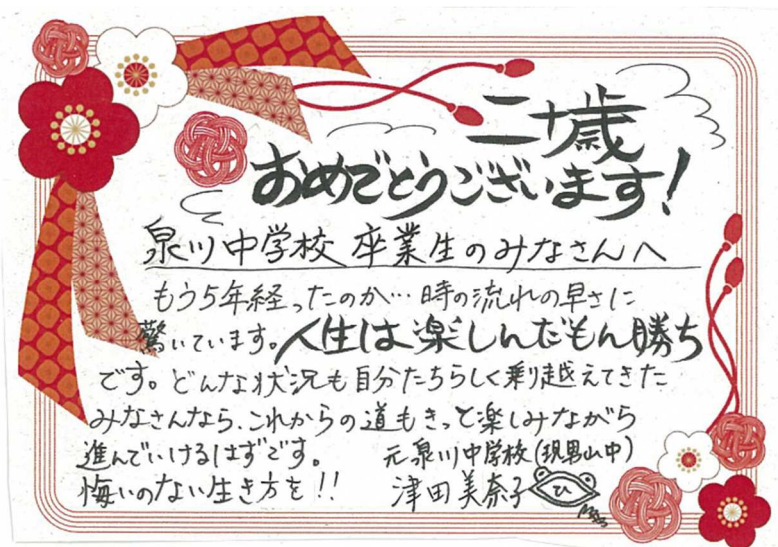 二十歳
おめでとうございます！
泉川中学校 卒業生のみなさんへ
もう5年経ったのか…時の流れの早さに
驚いています。人生は楽しんだもん勝ち
です。どんな状況も自分たちらしく乗り越えてきた
みなさんなら、これからの道もきっと楽しみながら
進んでいけるはずです。
悔いのない生き方を!!
元泉川中学校(現男山中)
津田美奈子
ひ